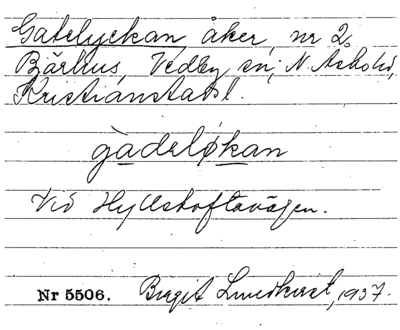 Gatelyckan åker, nr 2.
Bjärhus, Vedby sn, N. Åsbo hd,
Kristianstads l.
gàdeløkan
Vid Hyllstoftavägen.
Nr 5506. Birgit Lundkvist, 1937.